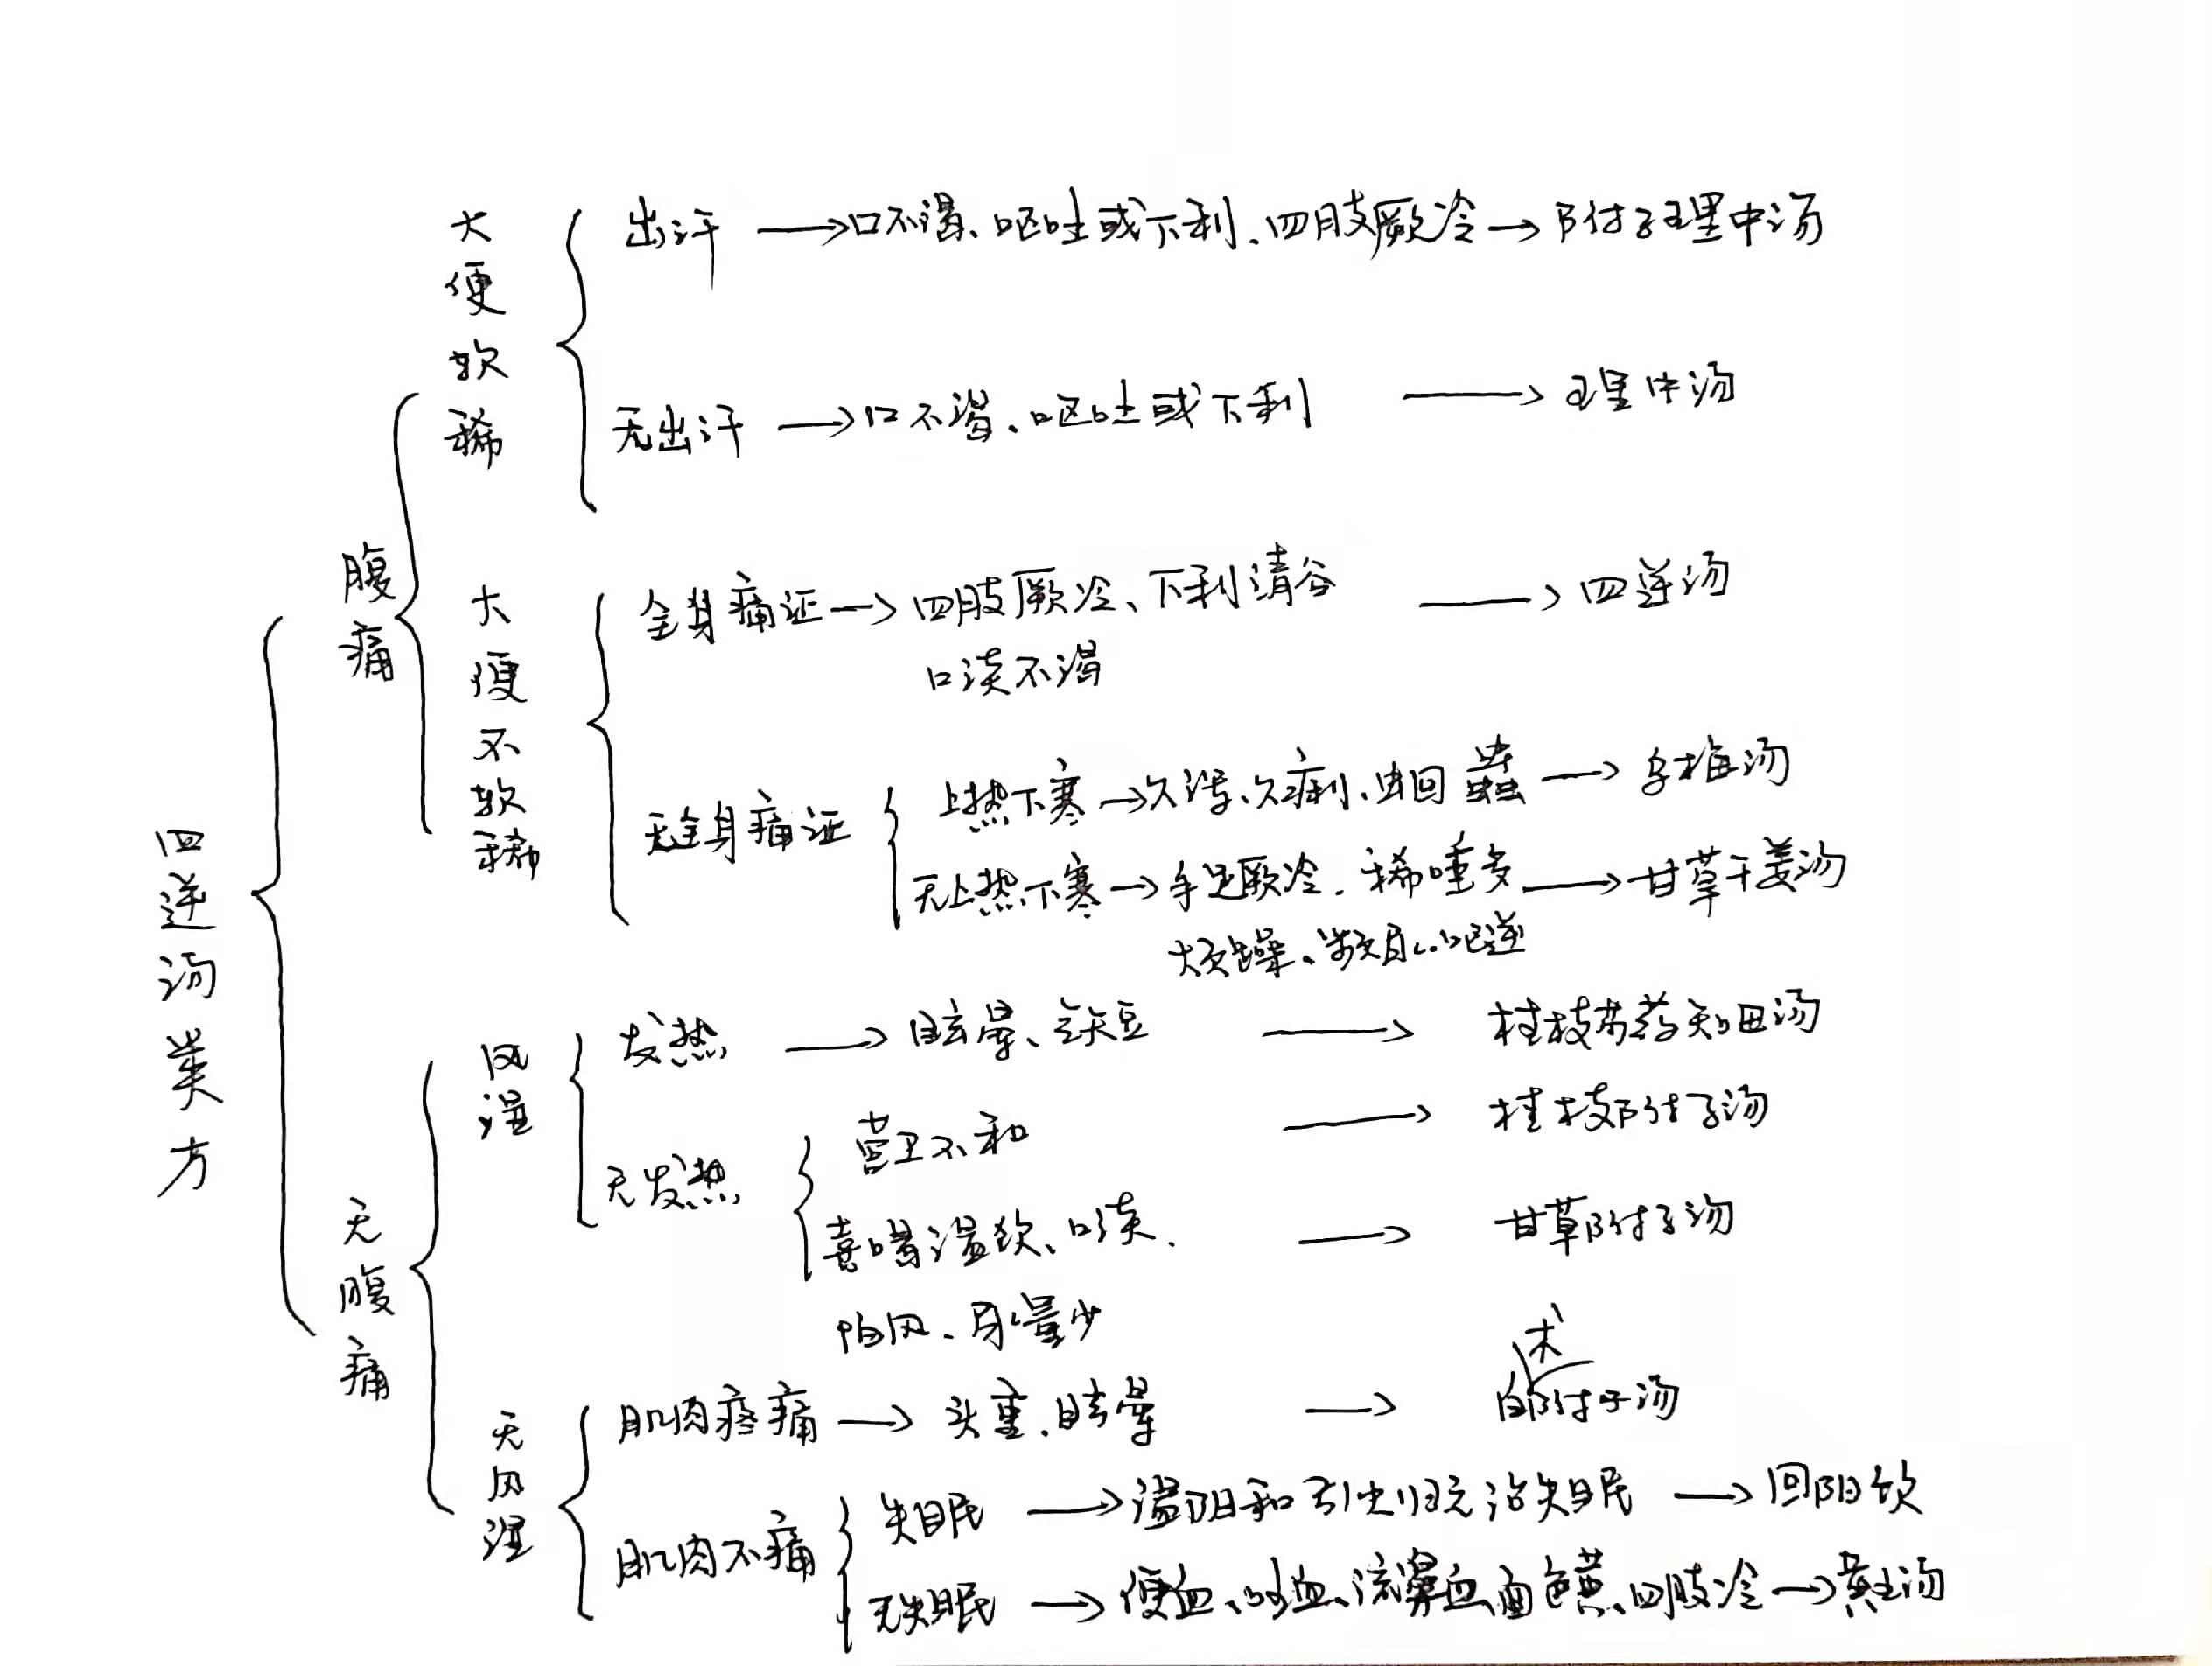 四逆汤类方
腹痛
大便软稀
出汗 → 口不渴、呕吐或下利、四肢厥冷 → 附子理中汤
无出汗 → 口不渴、呕吐或下利 → 理中汤
大便不软稀
全身痛证 → 四肢厥冷、下利清谷 → 四逆汤
口淡不渴
无全身痛证
上热下寒 → 久泻、久痢、蛔蟲 → 乌梅汤
无上热下寒 → 手足厥冷、稀唾多 → 甘草干姜汤
烦躁、呕逆
无腹痛
风湿
发热 → 眩晕、气短 → 桂枝芍药知母汤
无发热
营卫不和 → 桂枝附子汤
喜喝温饮、口淡、 → 甘草附子汤
怕风、尿量少
无风湿
肌肉疼痛 → 头重、眩晕 → 白术附子汤
肌肉不痛
失眠 → 温阳和引火归元治失眠 → 回阳饮
无失眠 → 便血、吐血、流鼻血、面色黄、四肢冷 → 黄土汤